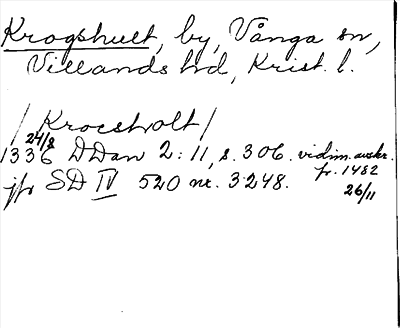 Krogshult, by, Vånga sn,
Villands hd, Krist. l.
/Krocsholt/
1336 24/8 DDan 2:11, s. 306. vidim. avskr.
fr. 1482 26/11
jfr SD IV 520 nr. 3248.